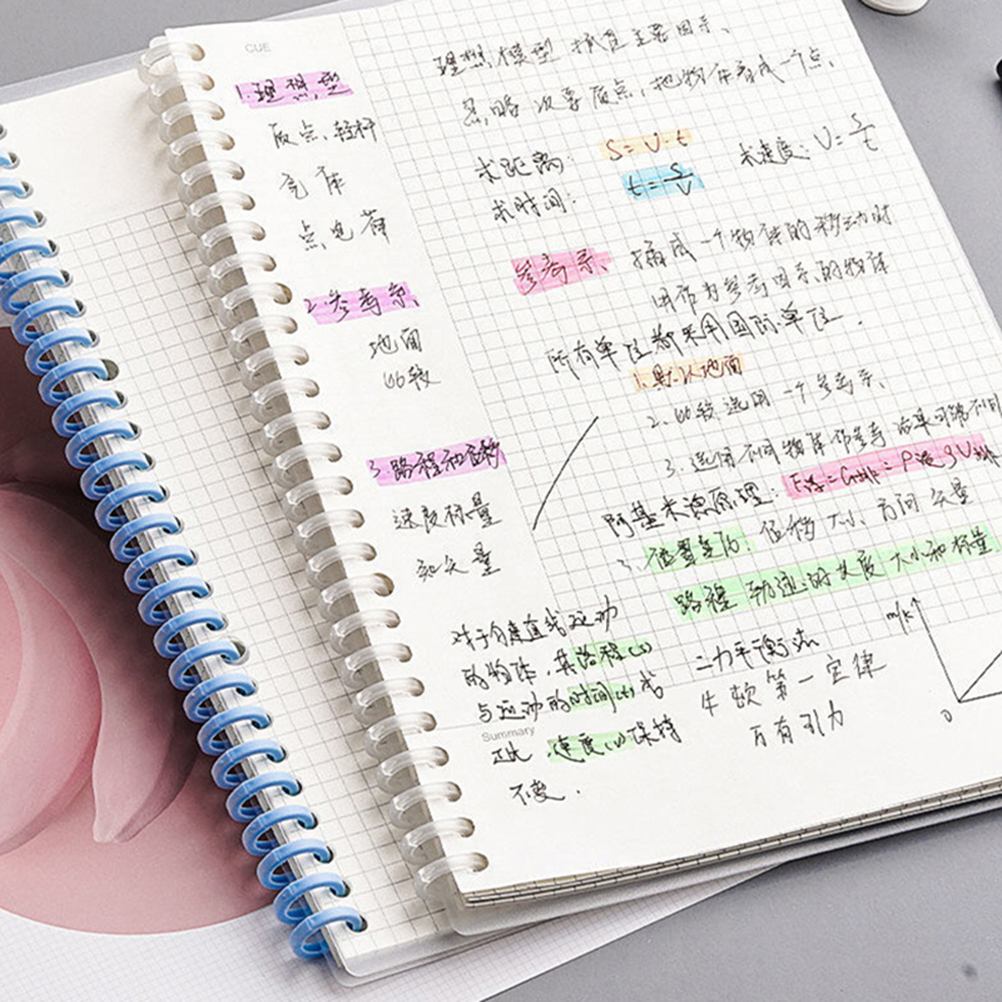 CUE
1.理想型
质点、轻杆
点电荷
2.参考系、
地面
比较
3.路程和位移
速度标量
和矢量
对于匀速直线运动
的物体,其路程(s)
与运动的时间(t)成
Summary
正比,速度(v)保持
不变.
理想模型 抓住主要因素、
忽略次要质点,把物体看成一个点.
求距离: S=V·t 求速度: V=S/t
求时间: t=S/V
参考系、描成一个物体的移动时
用作为参考因系的物体
所有单位都采用国际单位.
1.默认地面
2.比较选用一个参考系、
3.选用不同物体作参考 结果可能不同
阿基米德原理: F浮=G排=P液gV排
3.位置变化: 位移 大小、方向 矢量
路程 轨迹的长度 大小和标量
二力平衡法
牛顿第一定律
万有引力
m/k
0